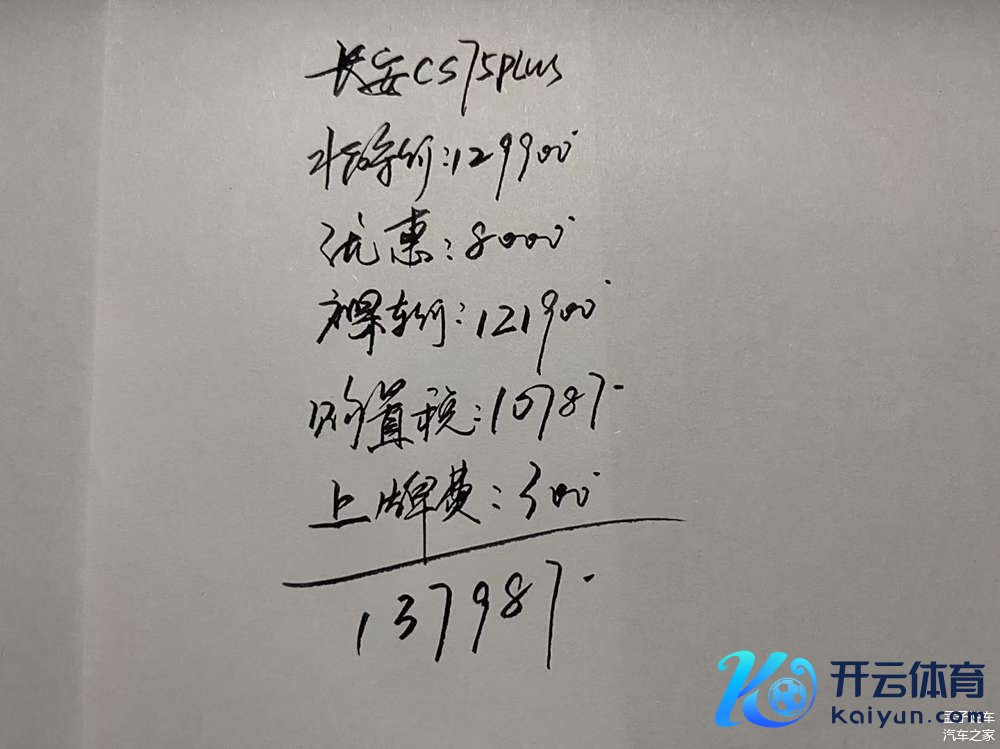 长安CS75PLUS
指导价:129900
优惠:8000
裸车价:121900
购置税:10787
上牌费:300
137987
开云体育
kaiyun.com
汽车之家